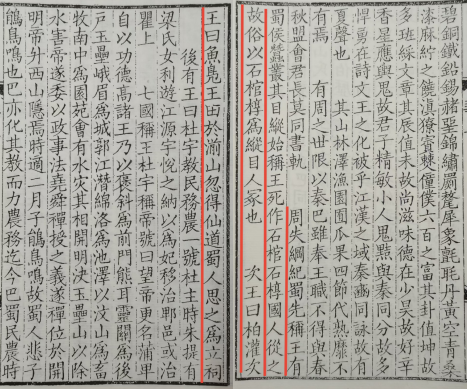 碧銅鐵鉛錫赭堊錦繡罽氂犀象氈毦丹黃空青桑
漆麻紵之饒滇獠賨僰僮僕六百之富其卦值坤故
多班綵文章其辰值未故尚滋味德在少昊故好辛
香星應輿鬼故君子精敏小人鬼黠與秦同分故多
悍勇在詩文王之化被乎江漢之域秦豳同詠故有
夏聲也　其山林澤漁園囿瓜果四節代熟靡不
有焉　有周之世限以秦巴雖奉王職不得與春
秋盟會君長莫同書軌　周失綱紀蜀先稱王有
蜀侯蠶叢其目縱始稱王死作石棺石椁國人從之
故俗以石棺椁為縱目人冢也　次王曰柏灌次
王曰魚鳧王田於湔山忽得仙道蜀人思之為立祠
後有王曰杜宇教民務農一號杜主時朱提有
梁氏女利遊江源宇悅之納以為妃移治郫邑或治
瞿上　七國稱王杜宇稱帝號曰望帝更名蒲卑
自以功德高諸王乃以褒斜為前門熊耳靈關為後
戶玉壘峨眉為城郭江潛綿洛為池澤以汶山為畜
牧南中為園苑會有水災其相開明決玉壘山以除
水害帝遂委以政事法堯舜禪授之義遂禪位於開
明帝升西山隱焉時適二月子鵑鳥鳴故蜀人悲子
鵑鳥鳴也巴亦化其教而力農務迄今巴蜀民農時